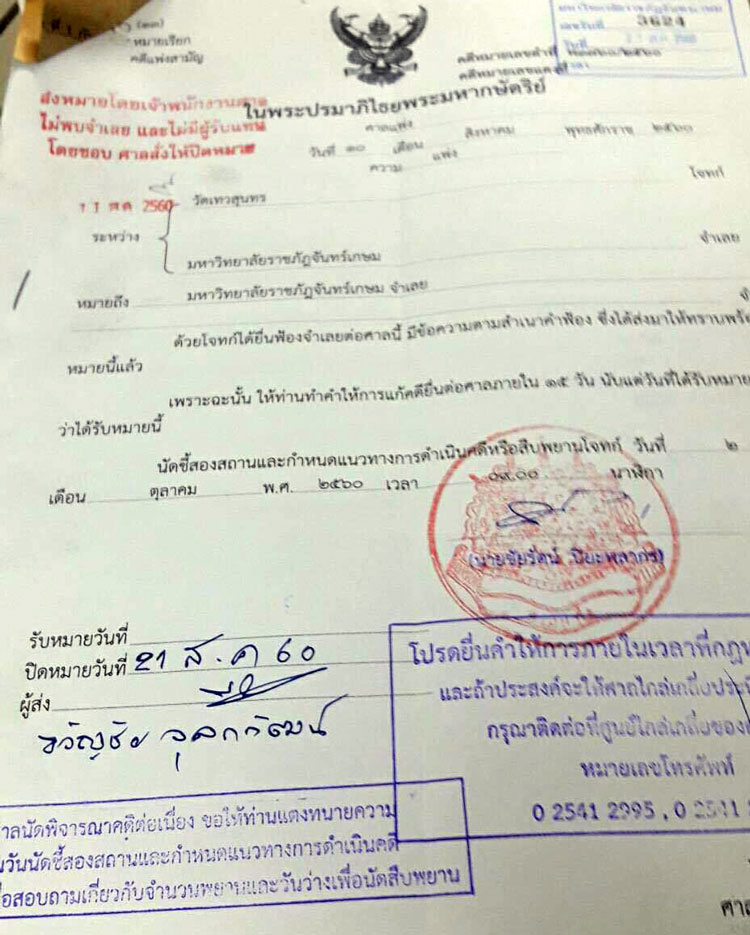 (๑๓)
หมายเรียก
คดีแพ่งสามัญ
มหาวิทยาลัยราชภัฏจันทรเกษม
เลขรับที่ 3624
วันที่
คดีหมายเลขดำที่
คดีหมายเลขแดงที่
ส่งหมายโดยเจ้าพนักงานศาล
ไม่พบจำเลย และไม่มีผู้รับแทน
โดยชอบ ศาลสั่งให้ปิดหมาย
ในพระปรมาภิไธยพระมหากษัตริย์
ศาลแพ่ง
วันที่ ๑๐ เดือน สิงหาคม พุทธศักราช ๒๕๖๐
ความ แพ่ง
11 สค 2560
วัดเทวสุนทร โจทก์
ระหว่าง
มหาวิทยาลัยราชภัฏจันทร์เกษม จำเลย
หมายถึง มหาวิทยาลัยราชภัฏจันทร์เกษม จำเลย
ด้วยโจทก์ได้ยื่นฟ้องจำเลยต่อศาลนี้ มีข้อความตามสำเนาคำฟ้อง ซึ่งได้ส่งมาให้ทราบพร้อ
หมายนี้แล้ว
เพราะฉะนั้น ให้ท่านทำคำให้การแก้คดียื่นต่อศาลภายใน ๑๕ วัน นับแต่วันที่ได้รับหมาย
ว่าได้รับหมายนี้
นัดชี้สองสถานและกำหนดแนวทางการดำเนินคดีหรือสืบพยานโจทก์ วันที่ ๒
เดือน ตุลาคม พ.ศ. ๒๕๖๐ เวลา ๐๙.๐๐ นาฬิกา
(นายชัยรัตน์ ปิยะพลากร)
รับหมายวันที่
ปิดหมายวันที่ 21 ส.ค 60
ผู้ส่ง
โปรดยื่นคำให้การภายในเวลาที่กฎห
และถ้าประสงค์จะให้ศาลไกล่เกลี่ยประนี
กรุณาติดต่อที่ศูนย์ไกล่เกลี่ยของ
หมายเลขโทรศัพท์
0 2541 2995 , 0 2541
าลนัดพิจารณาคดีต่อเนื่อง ขอให้ท่านแต่งทนายความ
นวันนัดชี้สองสถานและกำหนดแนวทางการดำเนินคดี
่อสอบถามเกี่ยวกับจำนวนพยานและวันว่างเพื่อนัดสืบพยาน
ศาล